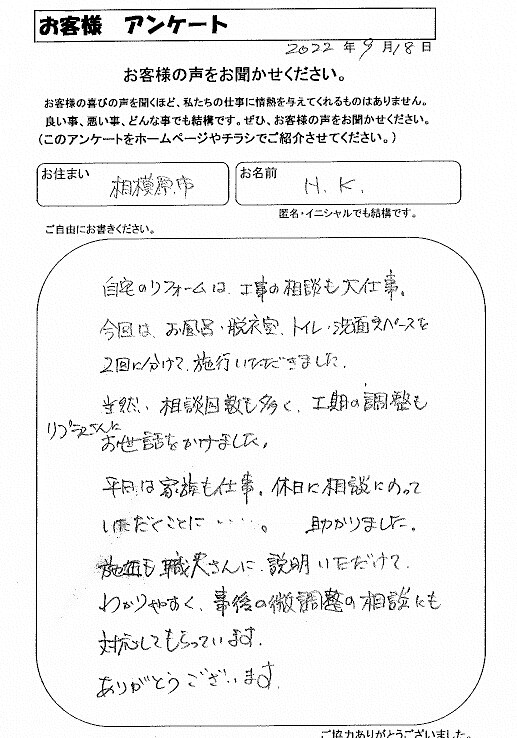 お客様 アンケート
2022 年 9 月 18 日
お客様の声をお聞かせください。
お客様の喜びの声を聞くほど、私たちの仕事に情熱を与えてくれるものはありません。
良い事、悪い事、どんな事でも結構です。ぜひ、お客様の声をお聞かせください。
(このアンケートをホームページやチラシでご紹介させてください。)
お住まい
相模原市
お名前
H. K.
匿名・イニシャルでも結構です。
ご自由にお書きください。
自宅のリフォームは、工事の相談も大仕事。
今回は、お風呂・脱衣室、トイレ・洗面スペースを
2回に分けて、施行いただきました。
当然、相談回数も多く、工期の調整も
リプラスさんに
お世話をかけました。
平日は家族も仕事。休日に相談にのって
いただくことに・・・・。 助かりました。
施工も職人さんに、説明いただけて、
わかりやすく、事後の微調整の相談にも
対応してもらっています。
ありがとうございます。
ご協力ありがとうございました。